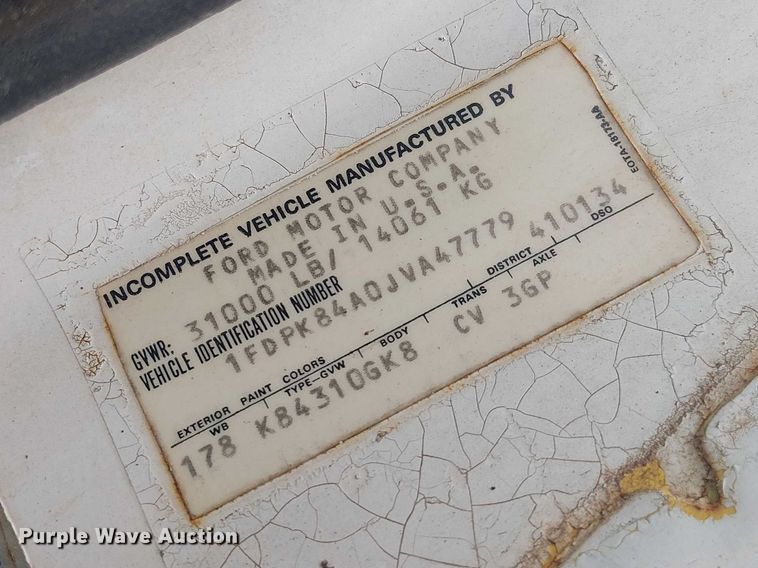 INCOMPLETE VEHICLE MANUFACTURED BY
FORD MOTOR COMPANY
MADE IN U.S.A.
GVWR: 31000 LB/ 14061 KG
VEHICLE IDENTIFICATION NUMBER
1FDPK84A0JVA47779 410134
EXTERIOR PAINT COLORS DISTRICT DSO
WB TYPE-GVW BODY TRANS AXLE
178 K84310GK8 CV 3GP
E0TA-18173-AA
Purple Wave Auction